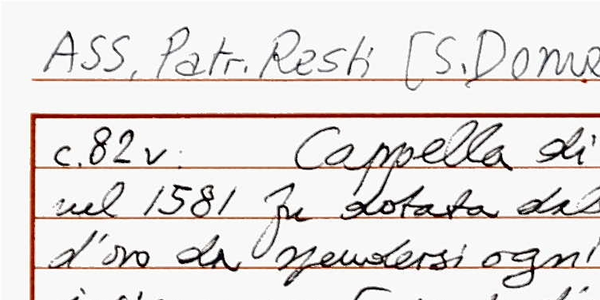 ASS, Patr. Resti [S. Dome
c. 82 v. Cappella di
nel 1581 fu dotata dal
d'oro da spendersi ogni